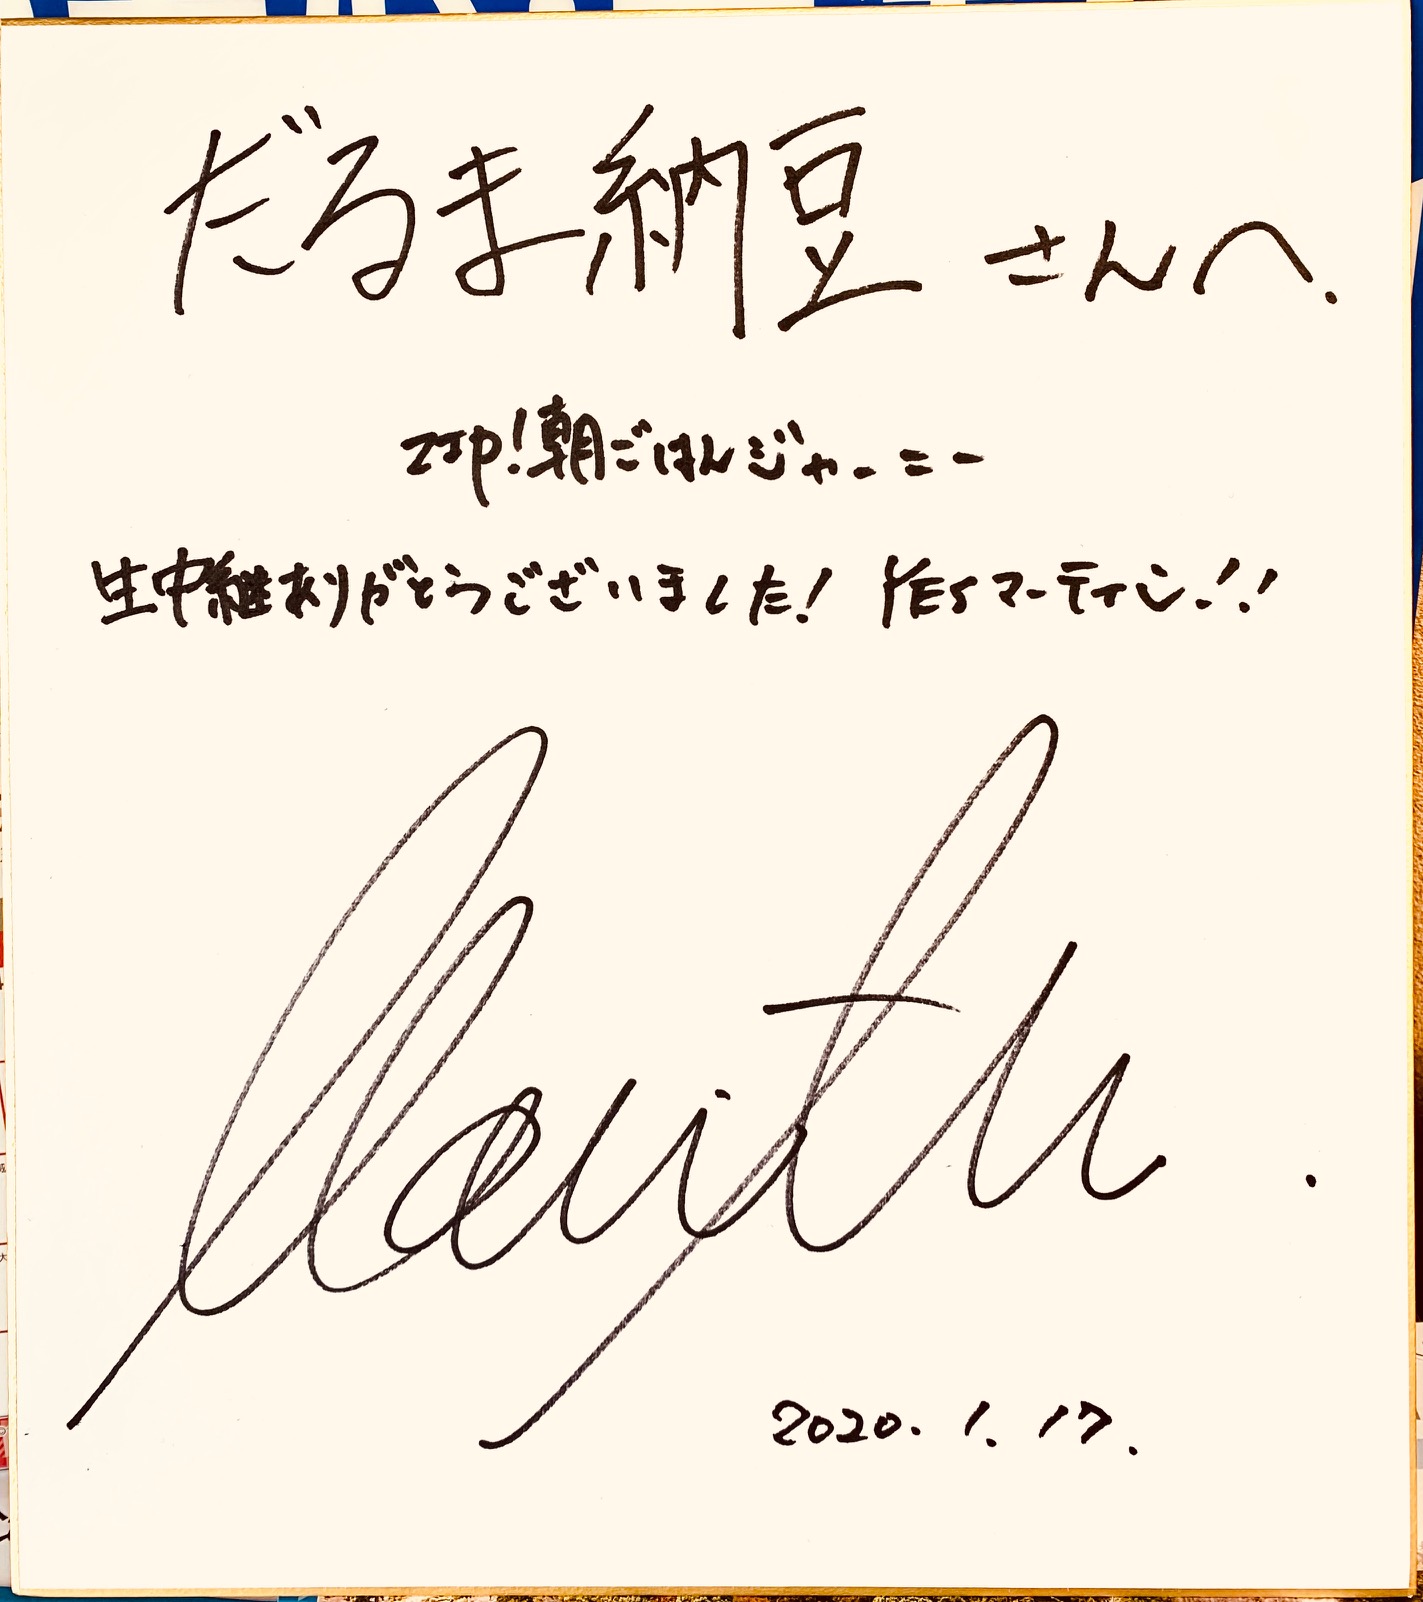 だるま納豆さんへ.
ZIP!朝ごはんジャーニー
生中継ありがとうございました! YESマーティン!!
Martin
2020.1.17.